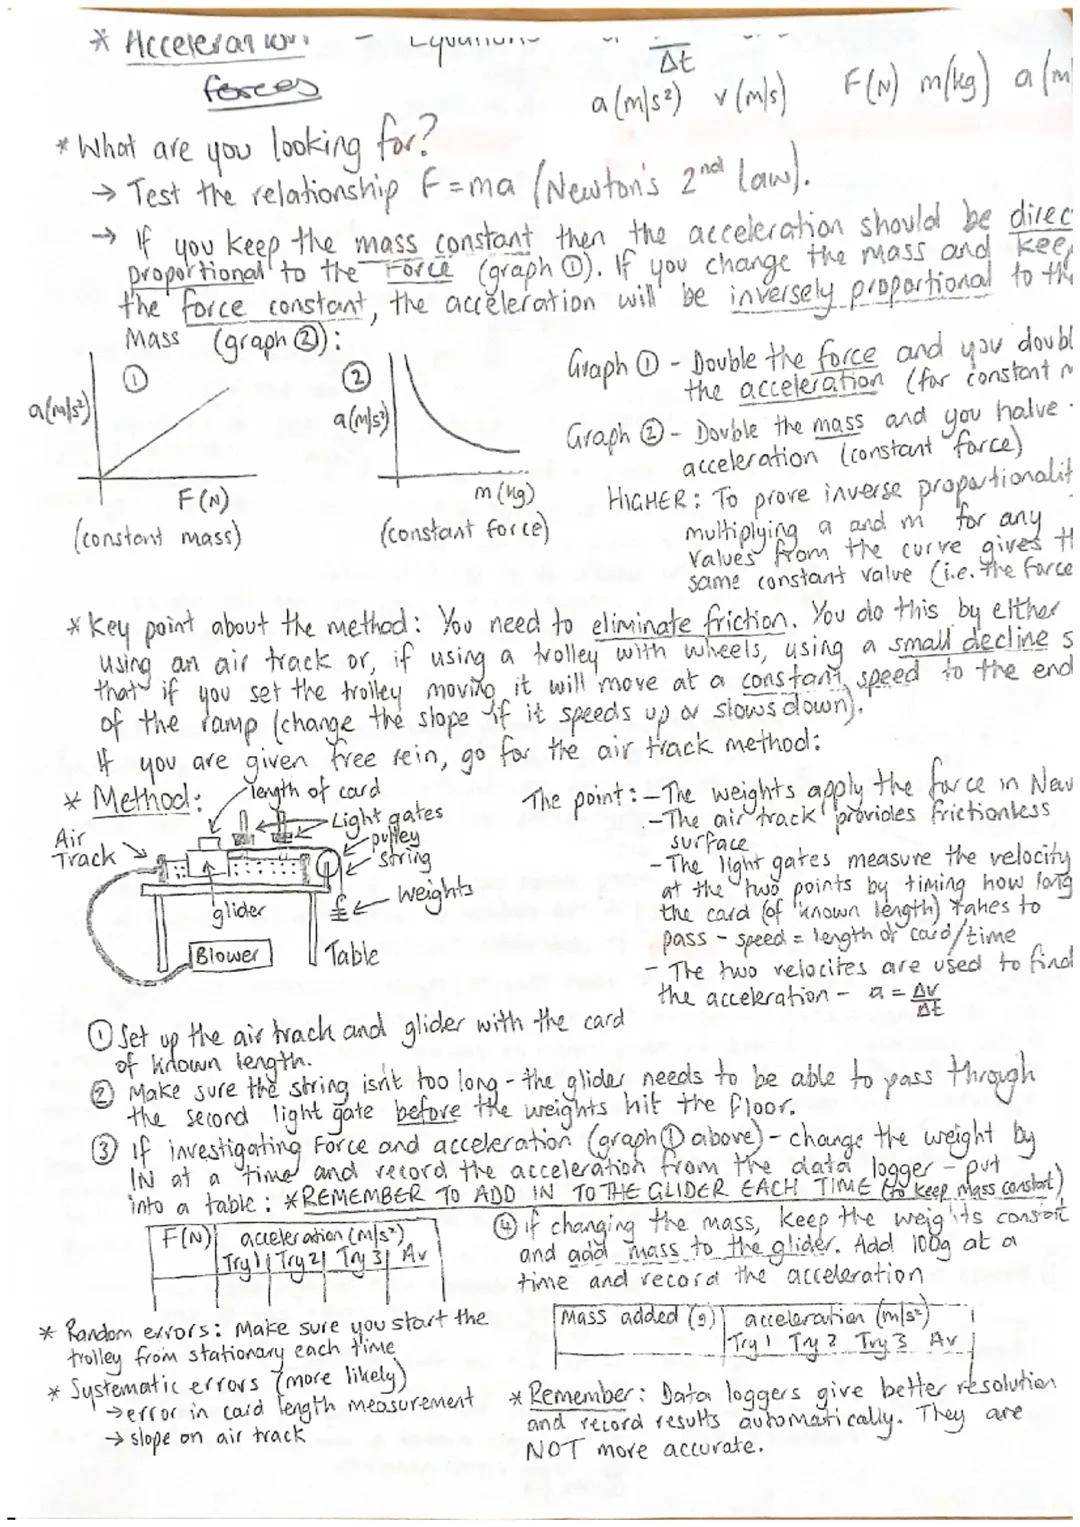 * Acceleration -
forces
Δt
a(m/s²) v(m/s) F(N) m(kg) a(m
* What are you looking for?
→ Test the relationship F=ma (Newton's 2nd law).
→ If you keep the mass constant then the acceleration should be direc
proportional to the Force (graph ①). If you change the mass and keep
the force constant, the acceleration will be inversely proportional to the
Mass (graph ②):
①
a(m/s²)
F(N)
(constant mass)
②
a(m/s²)
m(kg)
(constant force)
Graph ① - Double the force and you doubl
the acceleration (for constant m
Graph ② - Double the mass and you halve
acceleration (constant force)
HIGHER: To prove inverse proportionalit
multiplying a and m for any
values from the curve gives th
same constant value (i.e. the force
* Key point about the method: You need to eliminate friction. You do this by either
using an air track or, if using a trolley with wheels, using a small decline s
that if you set the trolley moving it will move at a constant speed to the end
of the ramp (change the slope if it speeds up or slows down).
If you are given free rein, go for the air track method:
* Method:
length of card
Light gates
pulley
string
weights
Air
Track
glider
Blower
Table
The point: - The weights apply the force in New
- The air track provides frictionless
surface
- The light gates measure the velocity
at the two points by timing how long
the card (of known length) takes to
pass - speed = length of card/time
- The two velocites are used to find
the acceleration - a = Δv
Δt
① Set up the air track and glider with the card
of known length.
② Make sure the string isn't too long - the glider needs to be able to pass through
the second light gate before the weights hit the floor.
③ If investigating Force and acceleration (graph ① above) - change the weight by
1N at a time and record the acceleration from the data logger - put
into a table: *REMEMBER TO ADD 1N TO THE GLIDER EACH TIME (to keep mass constant)
F(N) acceleration (m/s²)
Try 1 Try 2 Try 3 Av
④ if changing the mass, keep the weights constant
and add mass to the glider. Add 100g at a
time and record the acceleration
Mass added (g) acceleration (m/s²)
Try 1 Try 2 Try 3 Av
* Random errors: Make sure you start the
trolley from stationary each time
* Systematic errors (more likely)
→ error in card length measurement
→ slope on air track
* Remember: Data loggers give better resolution
and record results automatically. They are
NOT more accurate.